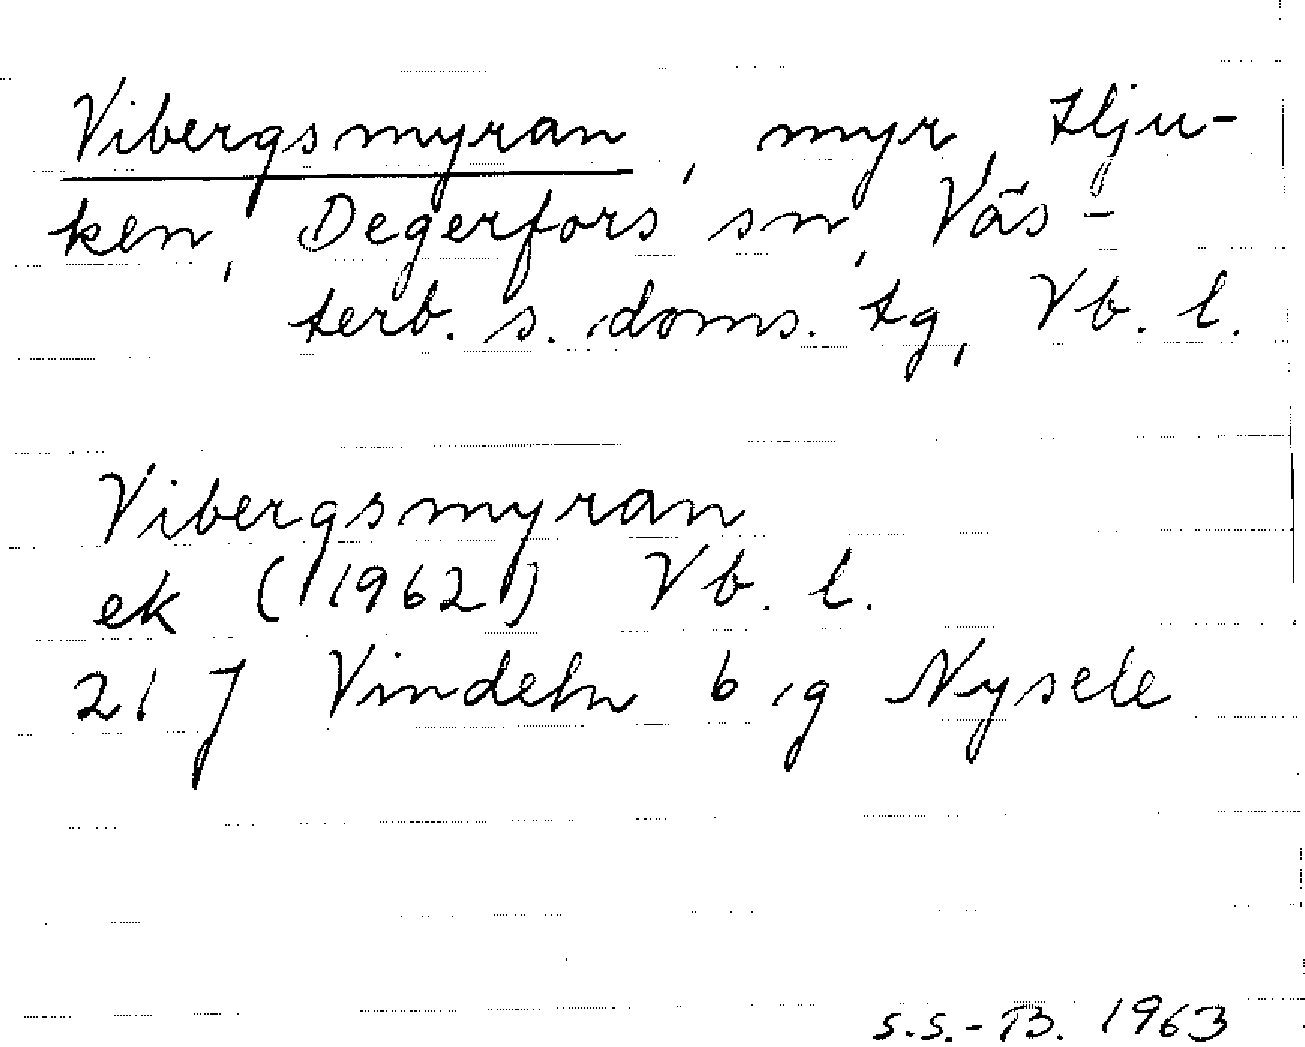 Vibergsmyran, myr, Hju-
ken, Degerfors sn, Väs-
terb. s. doms. tg, Vb. l.
Vibergsmyran
ek (1962) Vb. l.
21 J Vindeln 6 g Nysele
S.S.-B. 1963